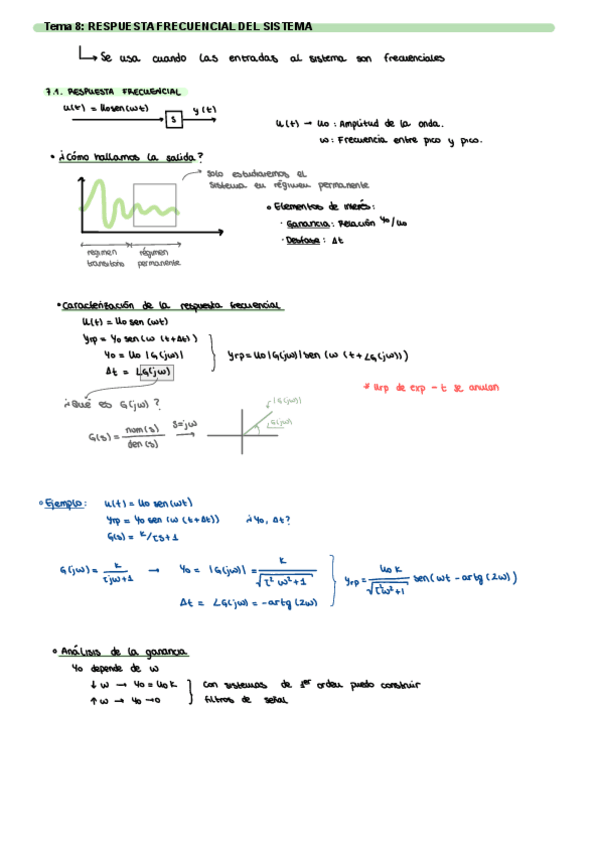 Tema 8: RESPUESTA FRECUENCIAL DEL SISTEMA
Se usa cuando las entradas al sistema son frecuenciales
7.1. RESPUESTA FRECUENCIAL
u(t) = u₀ sen(ωt)
S
y(t)
u(t) → u₀ : Amplitud de la onda.
ω : Frecuencia entre pico y pico.
• ¿Cómo hallamos la salida?
solo estudiaremos el
sistema en régimen permanente
• Elementos de interés:
· Ganancia: Relación y₀/u₀
· Desfase: Δt
regimen transitorio
régimen permanente
• Caracterización de la respuesta frecuencial
u(t) = u₀ sen (ωt)
yrp = y₀ sen (ω (t+Δt))
y₀ = u₀ |G(jω)|
Δt = ∠G(jω)
yrp = u₀ |G(jω)| sen (ω (t+∠G(jω)))
* urp de exp - t se anulan
¿Qué es G(jω)?
G(s) = num(s) / den(s)
s=jω
|G(jω)|
∠G(jω)
• Ejemplo: u(t) = u₀ sen(ωt)
yrp = y₀ sen (ω (t+Δt)) ¿y₀, Δt?
G(s) = k/τs+1
G(jω) = k / τjω+1 → y₀ = |G(jω)| = k / √τ²ω²+1
Δt = ∠G(jω) = -artg(2ω)
yrp = u₀ k / √τ²ω²+1 sen(ωt - artg(2ω))
• Análisis de la ganancia
y₀ depende de ω
↓ω → y₀ = u₀ k
↑ω → y₀ → 0
Con sistemas de 1er orden puedo construir
filtros de señal